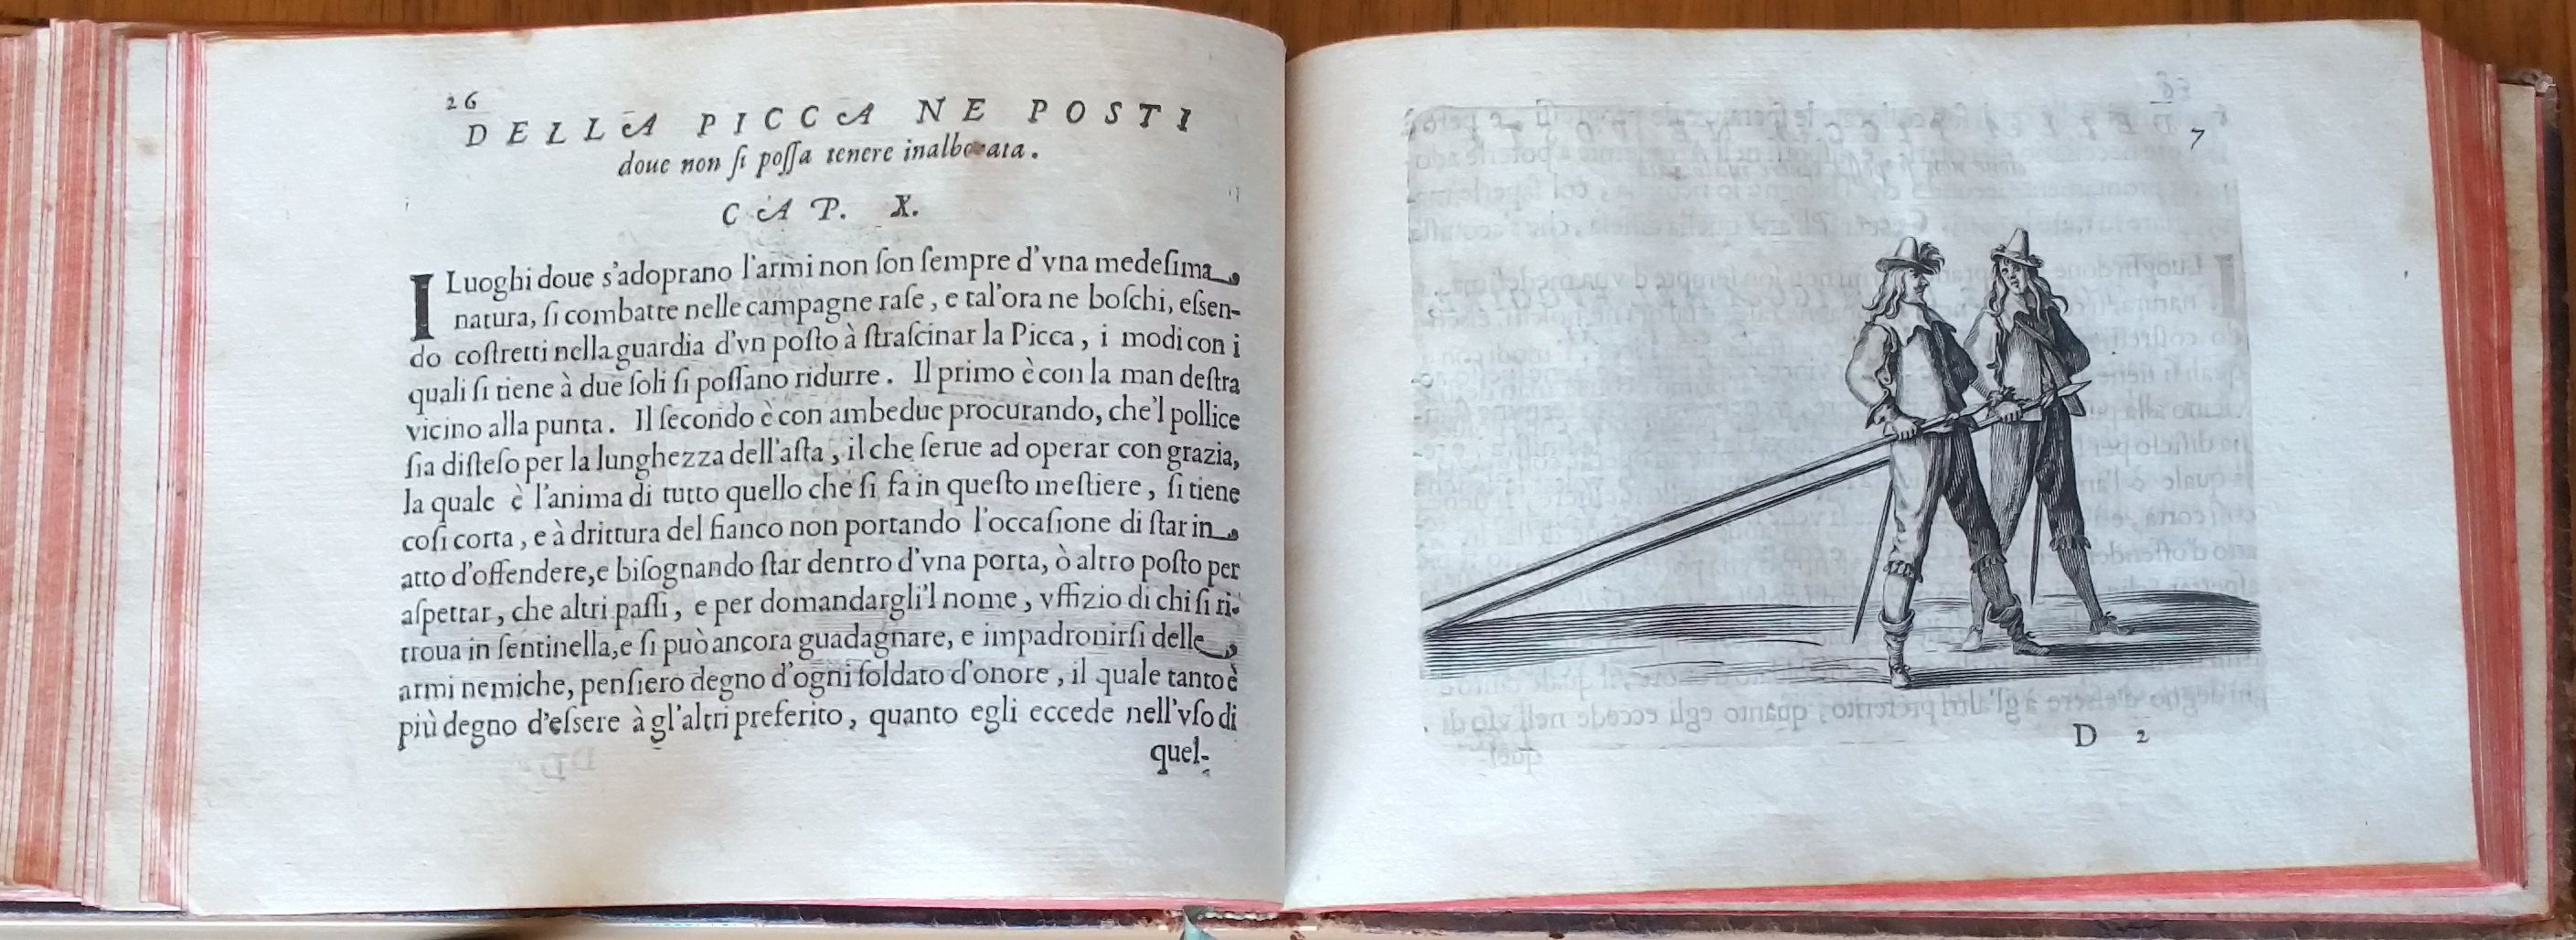 26
DELLA PICCA NE POSTI
doue non ſi poſſa tenere inalborata.
CAP. X.
I Luoghi doue s'adoprano l'armi non ſon ſempre d'vna medeſima
natura, ſi combatte nelle campagne raſe, e tal'ora ne boſchi, eſsen-
do coſtretti nella guardia d'vn poſto à ſtraſcinar la Picca, i modi con i
quali ſi tiene à due ſoli ſi poſſano ridurre. Il primo è con la man deſtra
vicino alla punta. Il ſecondo è con ambedue procurando, che'l pollice
ſia diſteſo per la lunghezza dell'aſta, il che ſerue ad operar con grazia,
la quale è l'anima di tutto quello che ſi fa in queſto meſtiere, ſi tiene
coſi corta, e à drittura del fianco non portando l'occaſione di ſtar in
atto d'offendere, e biſognando ſtar dentro d'vna porta, ò altro poſto per
aſpettar, che altri paſſi, e per domandargli'l nome, vffizio di chi ſi ri-
troua in ſentinella, e ſi può ancora guadagnare, e impadronirſi delle
armi nemiche, penſiero degno d'ogni ſoldato d'onore, il quale tanto è
più degno d'eſsere à gl'altri preferito, quanto egli eccede nell'vſo di
quel-
7
D 2